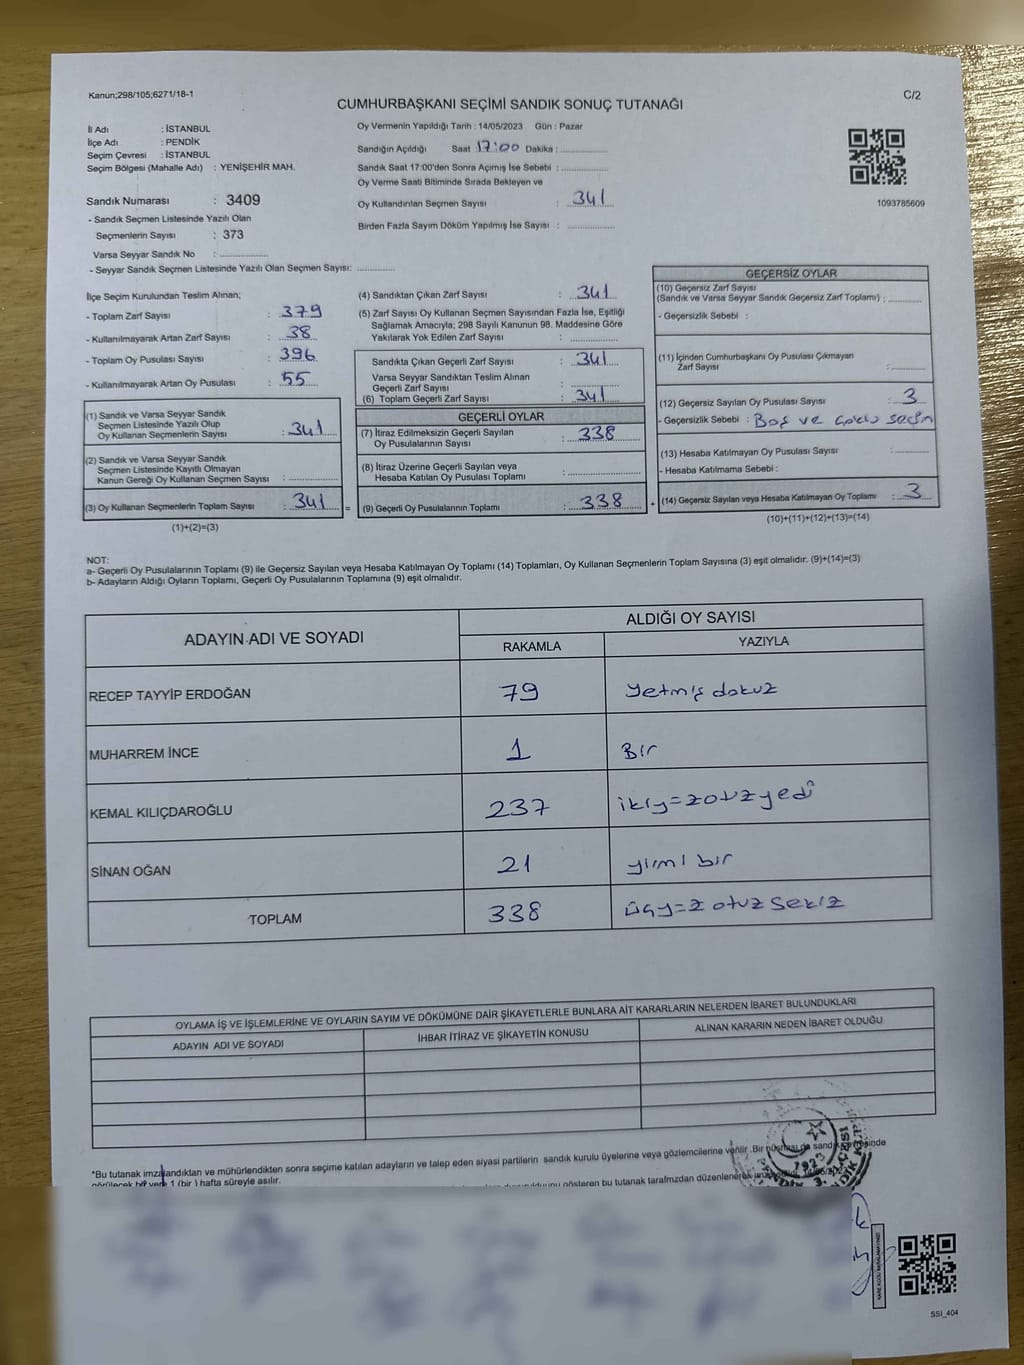 Kanun;298/105;6271/18-1
C/2
CUMHURBAŞKANI SEÇİMİ SANDIK SONUÇ TUTANAĞI
İl Adı : İSTANBUL
İlçe Adı : PENDİK
Seçim Çevresi : İSTANBUL
Seçim Bölgesi (Mahalle Adı) : YENİŞEHİR MAH.
Oy Vermenin Yapıldığı Tarih : 14/05/2023 Gün : Pazar
Sandığın Açıldığı Saat 17:00 Dakika :
Sandık Saat 17:00'den Sonra Açımış İse Sebebi :
Oy Verme Saati Bitiminde Sırada Bekleyen ve
Oy Kullandırılan Seçmen Sayısı : 341
Birden Fazla Sayım Döküm Yapılmış İse Sayısı :
1093785609
Sandık Numarası : 3409
- Sandık Seçmen Listesinde Yazılı Olan
Seçmenlerin Sayısı : 373
Varsa Seyyar Sandık No :
- Seyyar Sandık Seçmen Listesinde Yazılı Olan Seçmen Sayısı:
İlçe Seçim Kurulundan Teslim Alınan;
- Toplam Zarf Sayısı : 379
- Kullanılmayarak Artan Zarf Sayısı : 38
- Toplam Oy Pusulası Sayısı : 396
- Kullanılmayarak Artan Oy Pusulası : 55
(1) Sandık ve Varsa Seyyar Sandık
Seçmen Listesinde Yazılı Olup
Oy Kullanan Seçmenlerin Sayısı : 341
(2) Sandık ve Varsa Seyyar Sandık
Seçmen Listesinde Kayıtlı Olmayan
Kanun Gereği Oy Kullanan Seçmen Sayısı :
(3) Oy Kullanan Seçmenlerin Toplam Sayısı : 341 =
(1)+(2)=(3)
(4) Sandıktan Çıkan Zarf Sayısı : 341
(5) Zarf Sayısı Oy Kullanan Seçmen Sayısından Fazla İse, Eşitliği
Sağlamak Amacıyla; 298 Sayılı Kanunun 98. Maddesine Göre
Yakılarak Yok Edilen Zarf Sayısı :
Sandıkta Çıkan Geçerli Zarf Sayısı : 341
Varsa Seyyar Sandıktan Teslim Alınan
Geçerli Zarf Sayısı :
(6) Toplam Geçerli Zarf Sayısı : 341
GEÇERLİ OYLAR
(7) İtiraz Edilmeksizin Geçerli Sayılan
Oy Pusulalarının Sayısı : 338
(8) İtiraz Üzerine Geçerli Sayılan veya
Hesaba Katılan Oy Pusulası Toplamı :
(9) Geçerli Oy Pusulalarının Toplamı : 338 +
GEÇERSİZ OYLAR
(10) Geçersiz Zarf Sayısı
(Sandık ve Varsa Seyyar Sandık Geçersiz Zarf Toplamı) :
- Geçersizlik Sebebi :
(11) İçinden Cumhurbaşkanı Oy Pusulası Çıkmayan
Zarf Sayısı :
(12) Geçersiz Sayılan Oy Pusulası Sayısı : 3
- Geçersizlik Sebebi : Boş ve çoklu seçim
(13) Hesaba Katılmayan Oy Pusulası Sayısı :
- Hesaba Katılmama Sebebi :
(14) Geçersiz Sayılan veya Hesaba Katılmayan Oy Toplamı : 3
(10)+(11)+(12)+(13)=(14)
NOT:
a- Geçerli Oy Pusulalarının Toplamı (9) ile Geçersiz Sayılan veya Hesaba Katılmayan Oy Toplamı (14) Toplamları, Oy Kullanan Seçmenlerin Toplam Sayısına (3) eşit olmalıdır. (9)+(14)=(3)
b- Adayların Aldığı Oyların Toplamı, Geçerli Oy Pusulalarının Toplamına (9) eşit olmalıdır.
ADAYIN ADI VE SOYADI
ALDIĞI OY SAYISI
RAKAMLA YAZIYLA
RECEP TAYYİP ERDOĞAN 79 Yetmiş dokuz
MUHARREM İNCE 1 Bir
KEMAL KILIÇDAROĞLU 237 ikiy=zotuzyedi
SİNAN OĞAN 21 yirmi bir
TOPLAM 338 üçy=z otuz sekiz
OYLAMA İŞ VE İŞLEMLERİNE VE OYLARIN SAYIM VE DÖKÜMÜNE DAİR ŞİKAYETLERLE BUNLARA AİT KARARLARIN NELERDEN İBARET BULUNDUKLARI
ADAYIN ADI VE SOYADI İHBAR İTİRAZ VE ŞİKAYETİN KONUSU ALINAN KARARIN NEDEN İBARET OLDUĞU
*Bu tutanak imzalandıktan ve mühürlendikten sonra seçime katılan adayların ve talep eden siyasi partilerin sandık kurulu üyelerine veya gözlemcilerine verilir. Bir nüshası da sandık çevresinde
görülecek bir yerde 1 (bir) hafta süreyle asılır.
gösteren bu tutanak tarafımızdan düzenlenerek
1923
PENDİK 3. İLÇESİ
KARE KODU KARALAMAYINIZ!
SSI_404